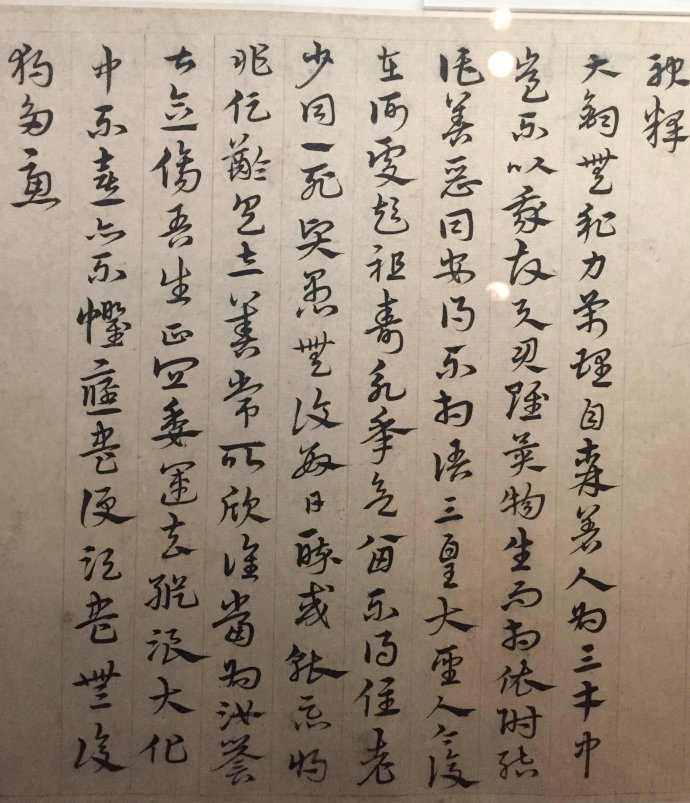 神釋
大鈞無私力萬理自森著人為三才中
豈不以我故與君雖異物生而相依附結
託善惡同安得不相語三皇大聖人今復
在何處彭祖壽永年欲留不得住老
少同一死賢愚無復數日醉或能忘將
非促齡具立善常所欣誰當為汝譽
甚念傷吾生正宜委運去縱浪大化
中不喜亦不懼應盡便須盡無復
獨多慮